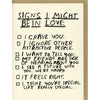 SIGNS I MIGHT
BE IN LOVE:
I CRAVE YOU.
I IGNORE OTHER
ATTRACTIVE PEOPLE.
I WANT TO TELL YOU
MY FRIENDS ARE SICK
OF HEARING ABOUT YOU
I SEE A FUTURE WITH
IT FEELS RIGHT.
I THINK YOU'RE SPECIAL
LIKE REALLY SPECIAL.